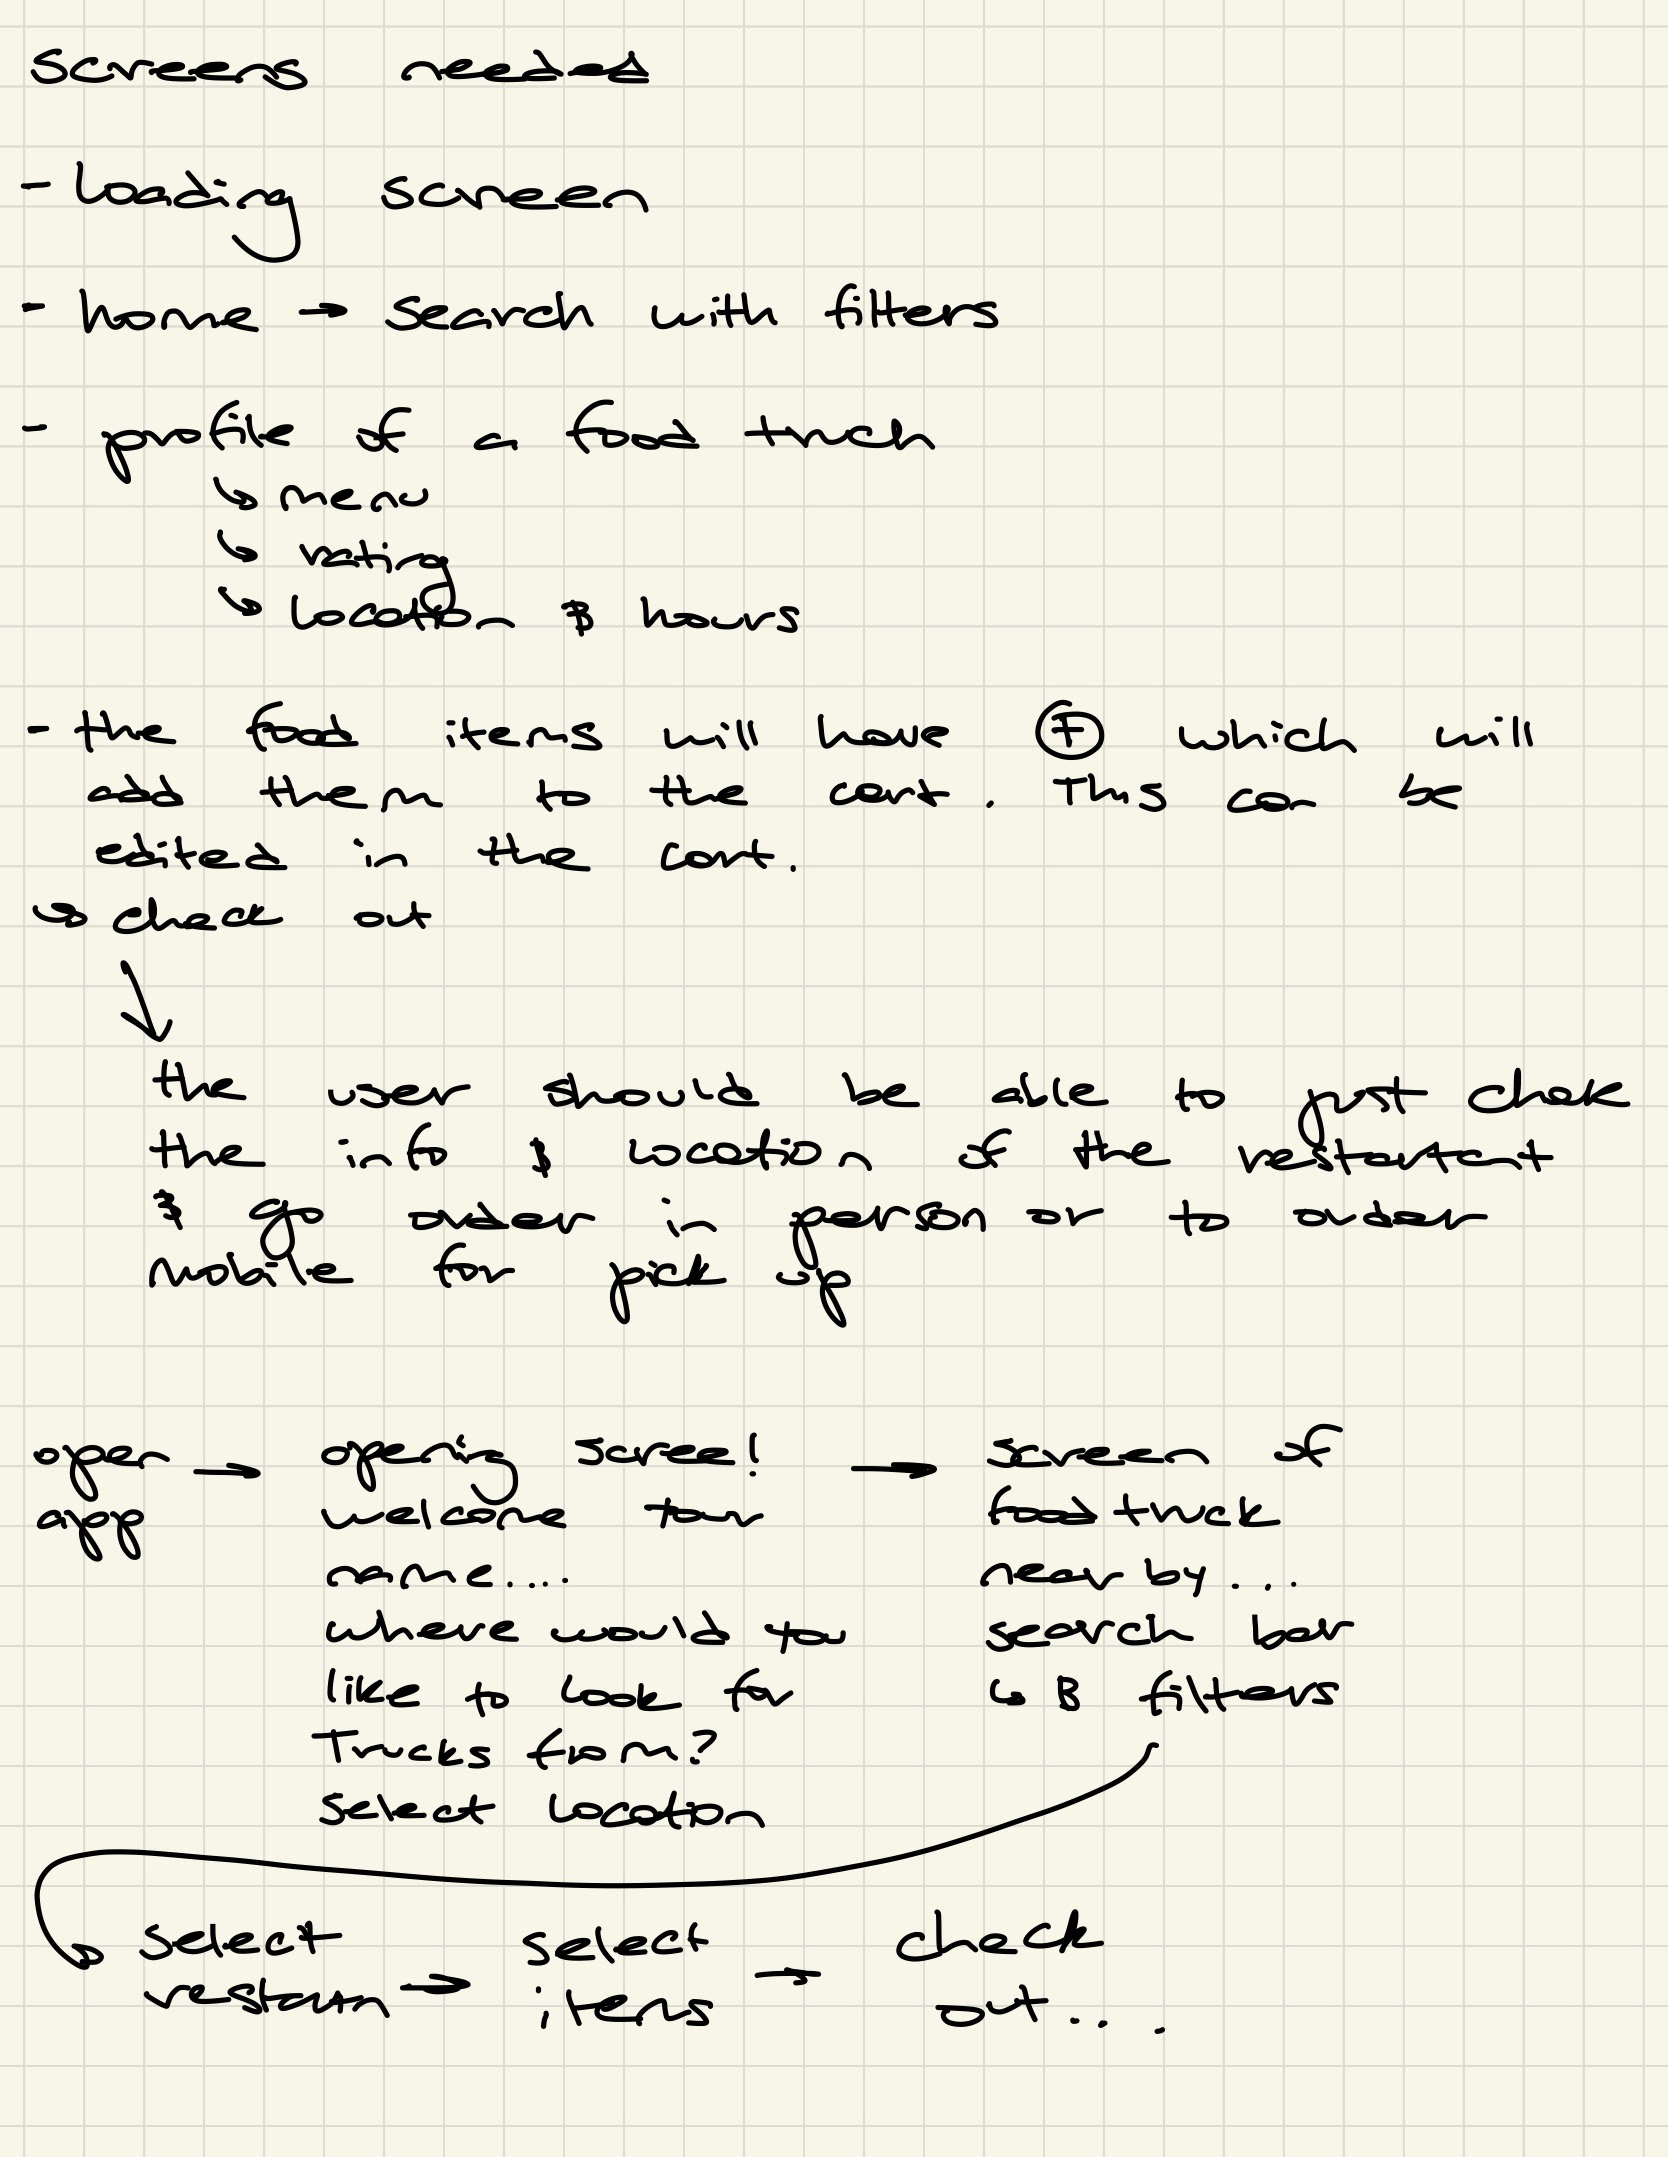 screens needed
- loading screen
- home → search with filters
- profile of a food truck
↳ menu
↳ rating
↳ location & hours
- the food items will have ⊕ which will
add them to the cart. This can be
edited in the cart.
↳ check out
↓
the user should be able to just chek
the info & location of the restartant
& go order in person or to order
mobile for pick up
open → opening scree! → screen of
app welcome your food truck
name.... near by...
where would you search bar
like to look for ↳ & filters
Trucks from?
select location
select → select → check
restaurn items out...